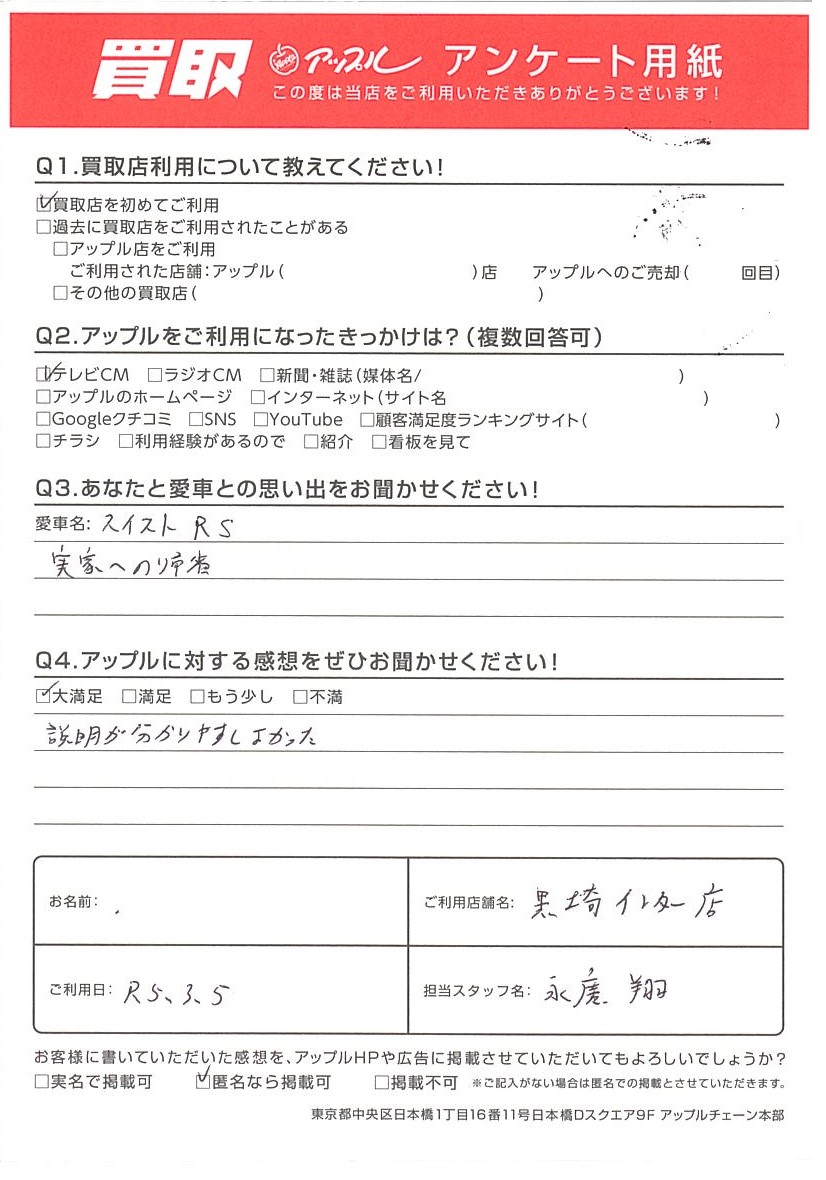 買取 アップル アンケート用紙
この度は当店をご利用いただきありがとうございます!
Q1.買取店利用について教えてください!
☑買取店を初めてご利用
□過去に買取店をご利用されたことがある
□アップル店をご利用
ご利用された店舗:アップル( )店 アップルへのご売却( 回目)
□その他の買取店( )
Q2.アップルをご利用になったきっかけは?(複数回答可)
☑テレビCM □ラジオCM □新聞・雑誌(媒体名/ )
□アップルのホームページ □インターネット(サイト名 )
□Googleクチコミ □SNS □YouTube □顧客満足度ランキングサイト( )
□チラシ □利用経験があるので □紹介 □看板を見て
Q3.あなたと愛車との思い出をお聞かせください!
愛車名: スイスト RS
実家への帰省
Q4.アップルに対する感想をぜひお聞かせください!
☑大満足 □満足 □もう少し □不満
説明が分かりやすしよかった
お名前:
ご利用店舗名: 黒埼インター店
ご利用日: R5、3、5
担当スタッフ名: 永廣 翔
お客様に書いていただいた感想を、アップルHPや広告に掲載させていただいてもよろしいでしょうか?
□実名で掲載可 ☑匿名なら掲載可 □掲載不可 ※ご記入がない場合は匿名での掲載とさせていただきます。
東京都中央区日本橋1丁目16番11号日本橋Dスクエア9F アップルチェーン本部